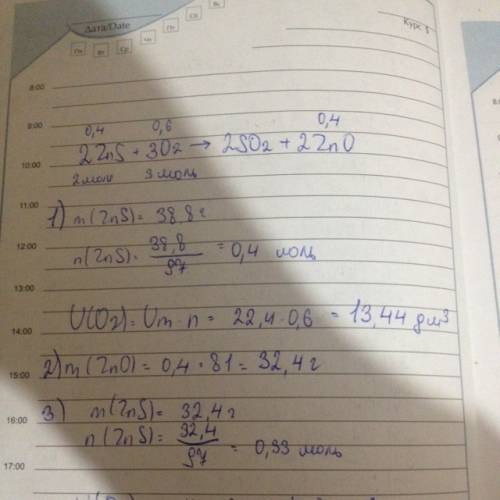 Дата/Date
Пн Вт Ср Чт Пт Сб Вс
Курс $
8:00
9:00
0,4 0,6 0,4
2ZnS + 3O2 → 2SO2 + 2ZnO
10:00
2 моль 3 моль
11:00
1) m(ZnS) = 38,8 г
12:00
n(ZnS) = 38,8/97 = 0,4 моль
13:00
U(O2) = Um · n = 22,4 · 0,6 = 13,44 дм³
14:00
2) m(ZnO) = 0,4 · 81 = 32,4 г
15:00
3) m(ZnS) = 32,4 г
16:00
n(ZnS) = 32,4/97 = 0,33 моль
17:00